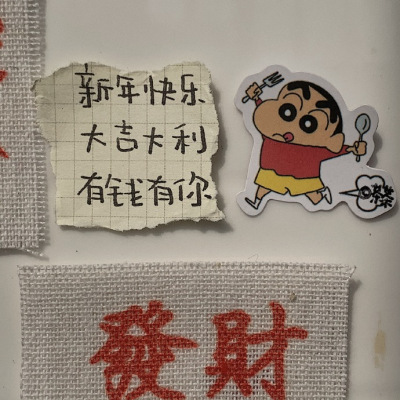 新年快乐
大吉大利
有钱有你
發財